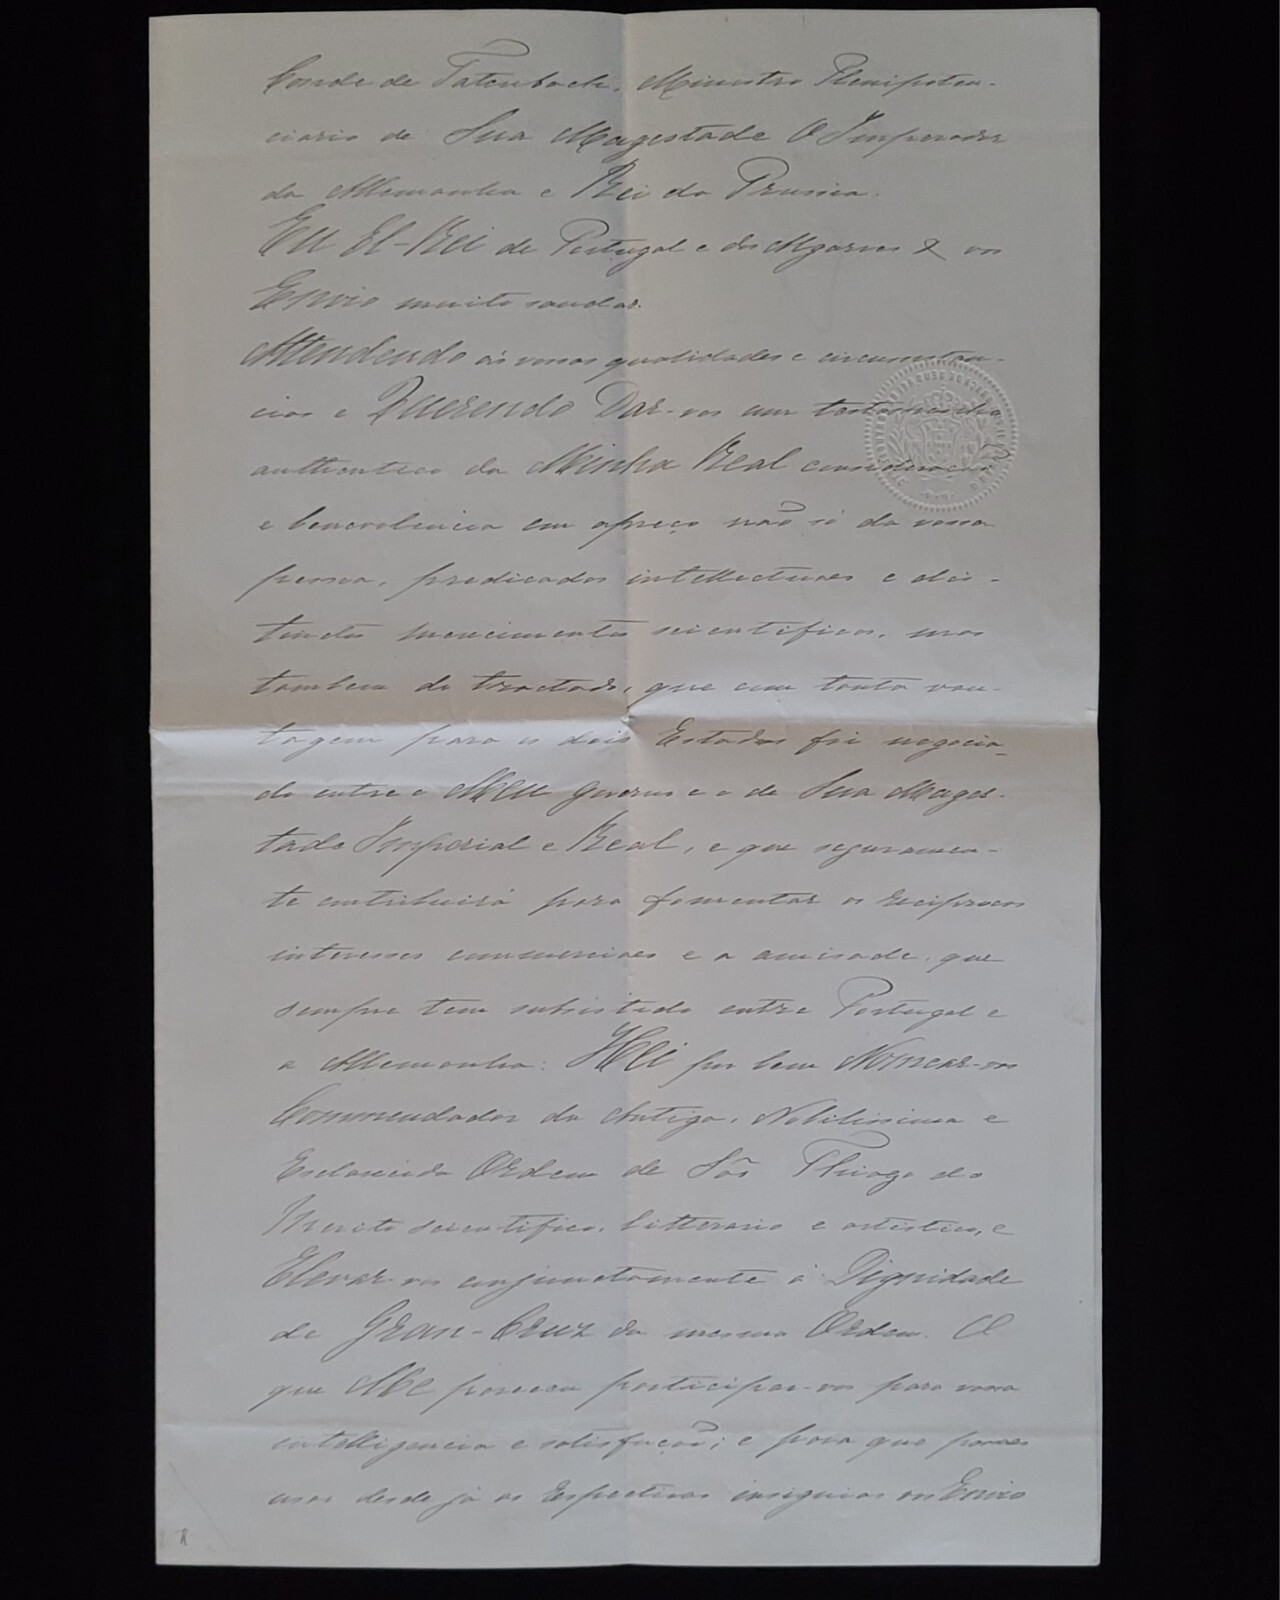 Conde de Tatenbach, Ministro Plenipoten-
ciario de Sua Magestade O Imperador
da Allemanha e Rei da Prussia.
EU El-Rei de Portugal e dos Algarves & vos
Envio muito saudar.
Attendendo ás vossas qualidades e circumstan-
cias e Querendo Dar-vos um testemunho
authentico da Minha Real consideração
e benevolencia em apreço não só da vossa
pessoa, predicados intellectuaes e dis-
tinctos merecimentos scientificos, mas
tambem do tractado, que com tanta van-
tagem para os dois Estados foi negocia-
do entre o Meu Governo e o de Sua Mages-
tade Imperial e Real, e que seguramen-
te contribuirá para fomentar os reciprocos
interesses commerciaes e a amisade, que
sempre tem subsistido entre Portugal e
a Allemanha: Hei por bem Nomear-vos
Commendador da Antiga, Nobilissima e
Esclarecida Ordem de São Thiago do
Merito scientifico, litterario e artistico, e
Elevar-vos conjunctamente á Dignidade
de Gran-Cruz da mesma Ordem. O
que Me pareceu participar-vos para vossa
intelligencia e satisfação; e para que possaes
usar desde já as respectivas insignias vos Envio